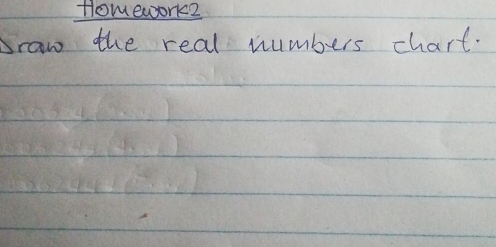 Homework2
Draw the real numbers chart.